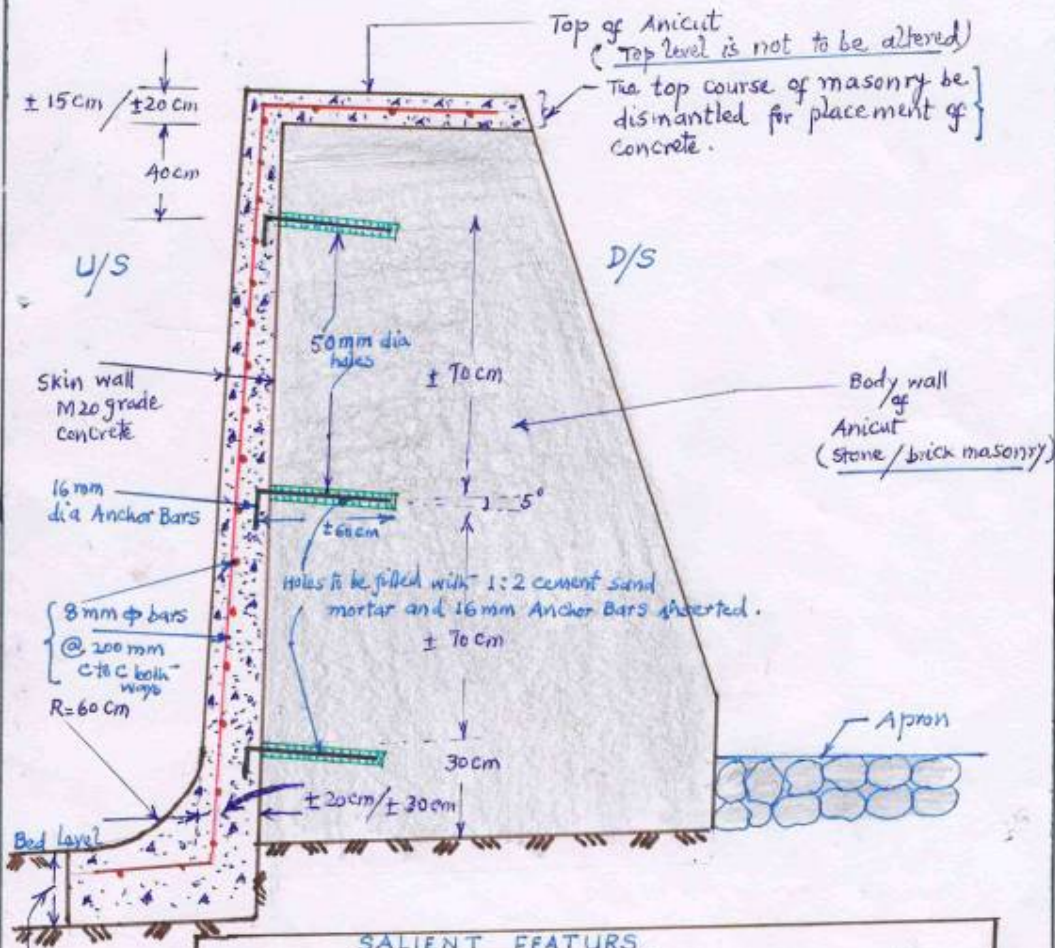 Top of Anicut
( Top level is not to be altered)
± 15 cm / ± 20 cm
The top course of masonry be
dismantled for placement of
concrete.
40 cm
U/S
D/S
50 mm dia
holes
± 70 cm
Skin wall
M20 grade
concrete
Body wall
of
Anicut
(Stone / brick masonry)
16 mm
dia Anchor Bars
5°
± 60 cm
Holes to be filled with 1:2 cement sand
mortar and 16 mm Anchor Bars inserted.
8 mm φ bars
@ 200 mm
C to C both
ways
± 70 cm
R = 60 cm
Apron
30 cm
± 20 cm / ± 30 cm
Bed level
SALIENT FEATURS